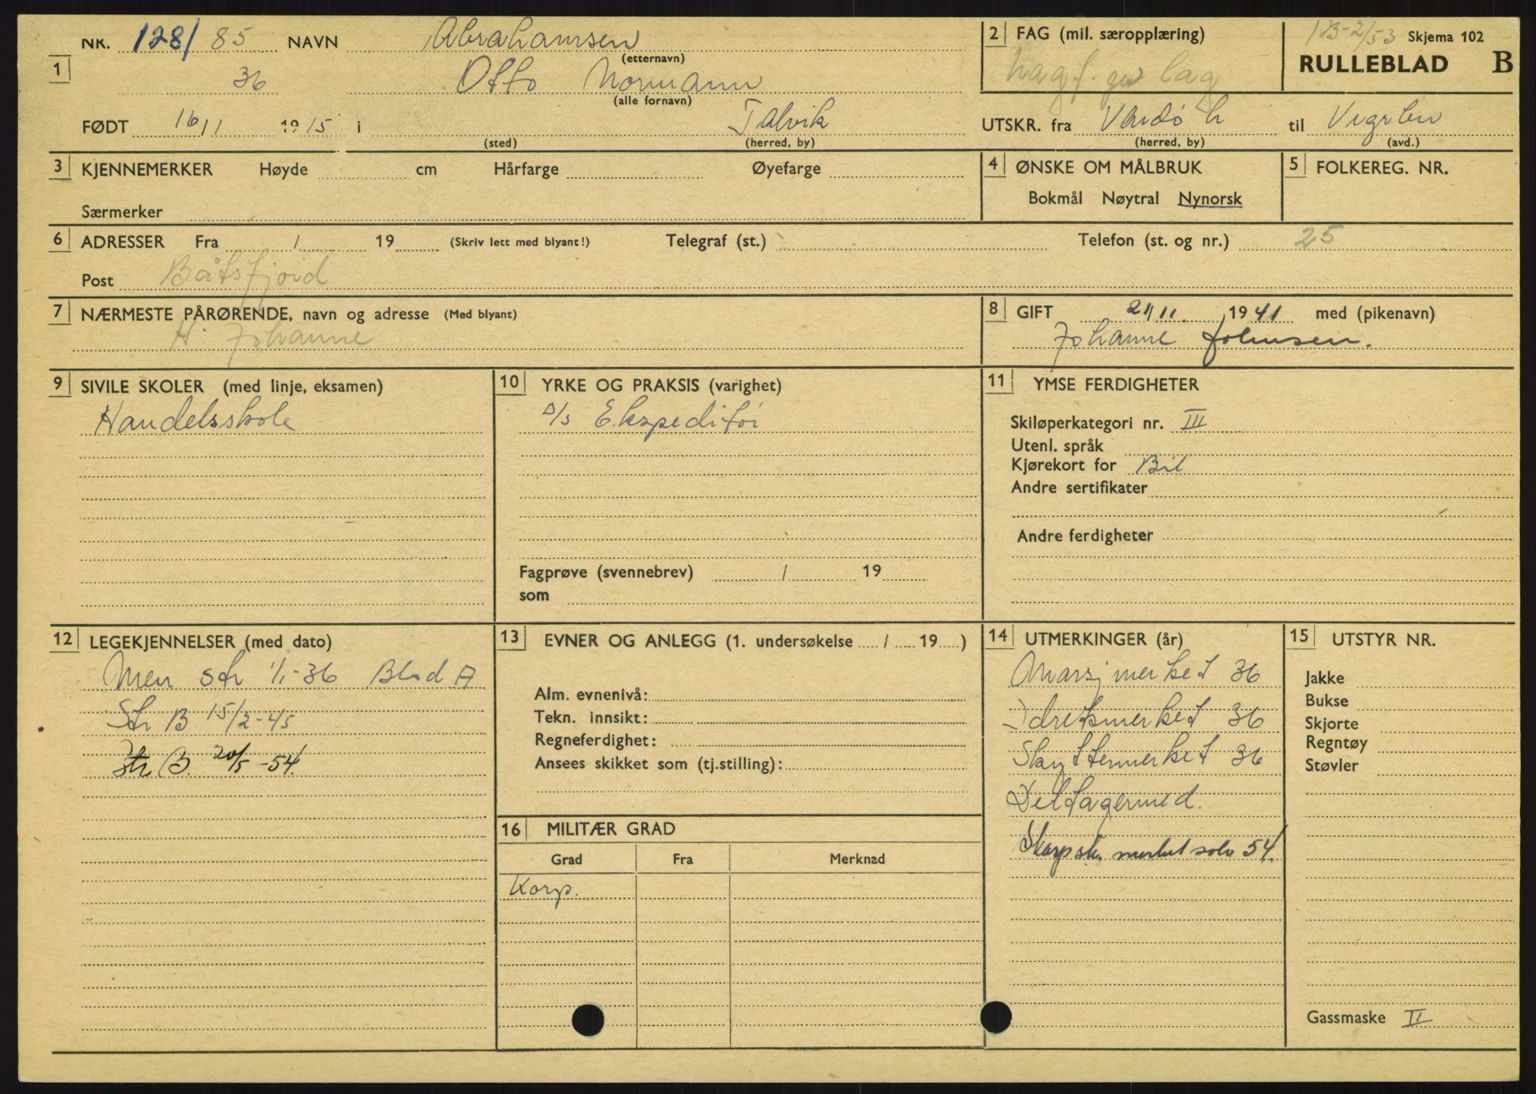 NR. 128/85 NAVN Abrahamsen
(etternavn)
1 36 Otto Normann
(alle fornavn)
FØDT 16/11 1915 i Talvik
(sted) (herred, by)
2 FAG (mil. særopplæring)
lag
1B-2/53 Skjema 102
RULLEBLAD B
UTSKR. fra Vardø til
(herred, by) (avd.)
3 KJENNEMERKER Høyde cm Hårfarge Øyefarge
Særmerker
4 ØNSKE OM MÅLBRUK
Bokmål Nøytral Nynorsk
5 FOLKEREG. NR.
6 ADRESSER Fra / 19 (Skriv lett med blyant!) Telegraf (st.) Telefon (st. og nr.) 25
Post Båtsfjord
7 NÆRMESTE PÅRØRENDE, navn og adresse (Med blyant)
H. Johanne
8 GIFT 21/11 1941 med (pikenavn)
Johanne Johnsen.
9 SIVILE SKOLER (med linje, eksamen)
Handelsskole
10 YRKE OG PRAKSIS (varighet)
D/S Ekspeditør
Fagprøve (svennebrev) / 19
som
11 YMSE FERDIGHETER
Skiløperkategori nr. III
Utenl. språk
Kjørekort for Bil
Andre sertifikater
Andre ferdigheter
12 LEGEKJENNELSER (med dato)
Men str 1/1-36 Blad A
Str B 15/2-45
Str B. 20/5-54.
13 EVNER OG ANLEGG (1. undersøkelse / 19 )
Alm. evnenivå:
Tekn. innsikt:
Regneferdighet:
Ansees skikket som (tj.stilling):
14 UTMERKINGER (år)
Marsjmerket 36
Idretsmerket 36
Skyttermerket 36
Deltagermed.
Skarpsk. merket sølv 54.
15 UTSTYR NR.
Jakke
Bukse
Skjorte
Regntøy
Støvler
Gassmaske II
16 MILITÆR GRAD
Grad Fra Merknad
Korp.